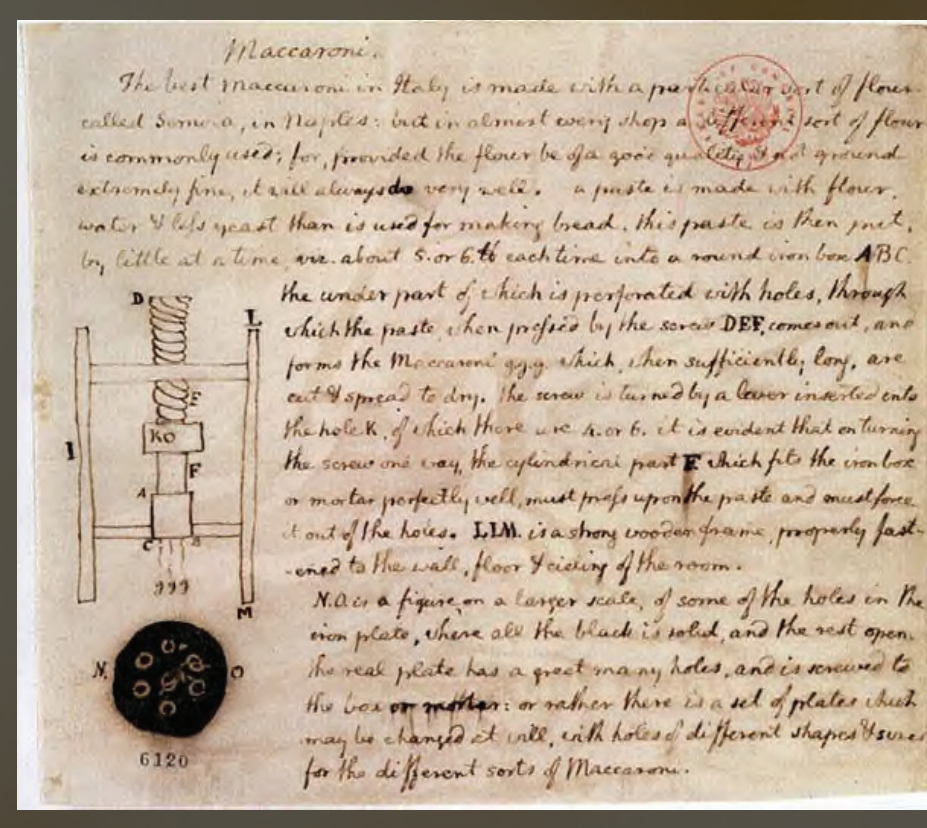 Maccaroni.
The best maccaroni in Italy is made with a particular sort of flour
called Semola, in Naples: but in almost every shop a different sort of flour
is commonly used; for, provided the flour be of a good quality & not ground
extremely fine, it will always do very well. a paste is made with flour,
water & less yeast than is used for making bread. this paste is then put,
by little at a time, viz. about 5. or 6. lb each time into a round iron box ABC.
the under part of which is perforated with holes, through
which the paste, when pressed by the screw DEF, comes out, and
forms the Maccaroni g.g.g. which, when sufficiently long, are
cut & spread to dry. the screw is turned by a lever inserted into
the hole K, of which there are 4. or 6. it is evident that on turning
the screw one way, the cylindrical part F. which fits the iron box
or mortar perfectly well, must press upon the paste and must force
it out of the holes. LLM. is a strong wooden frame, properly fast-
-ened to the wall, floor & cieling of the room.
N.O. is a figure, on a larger scale, of some of the holes in the
iron plate, where all the black is solid, and the rest open.
the real plate has a great many holes, and is screwed to
the box or mortar: or rather there is a set of plates which
may be changed at will, with holes of different shapes & sizes
for the different sorts of Maccaroni.
D
L
E
KO
I
F
A
C
B
ggg
M
N.
O
6120